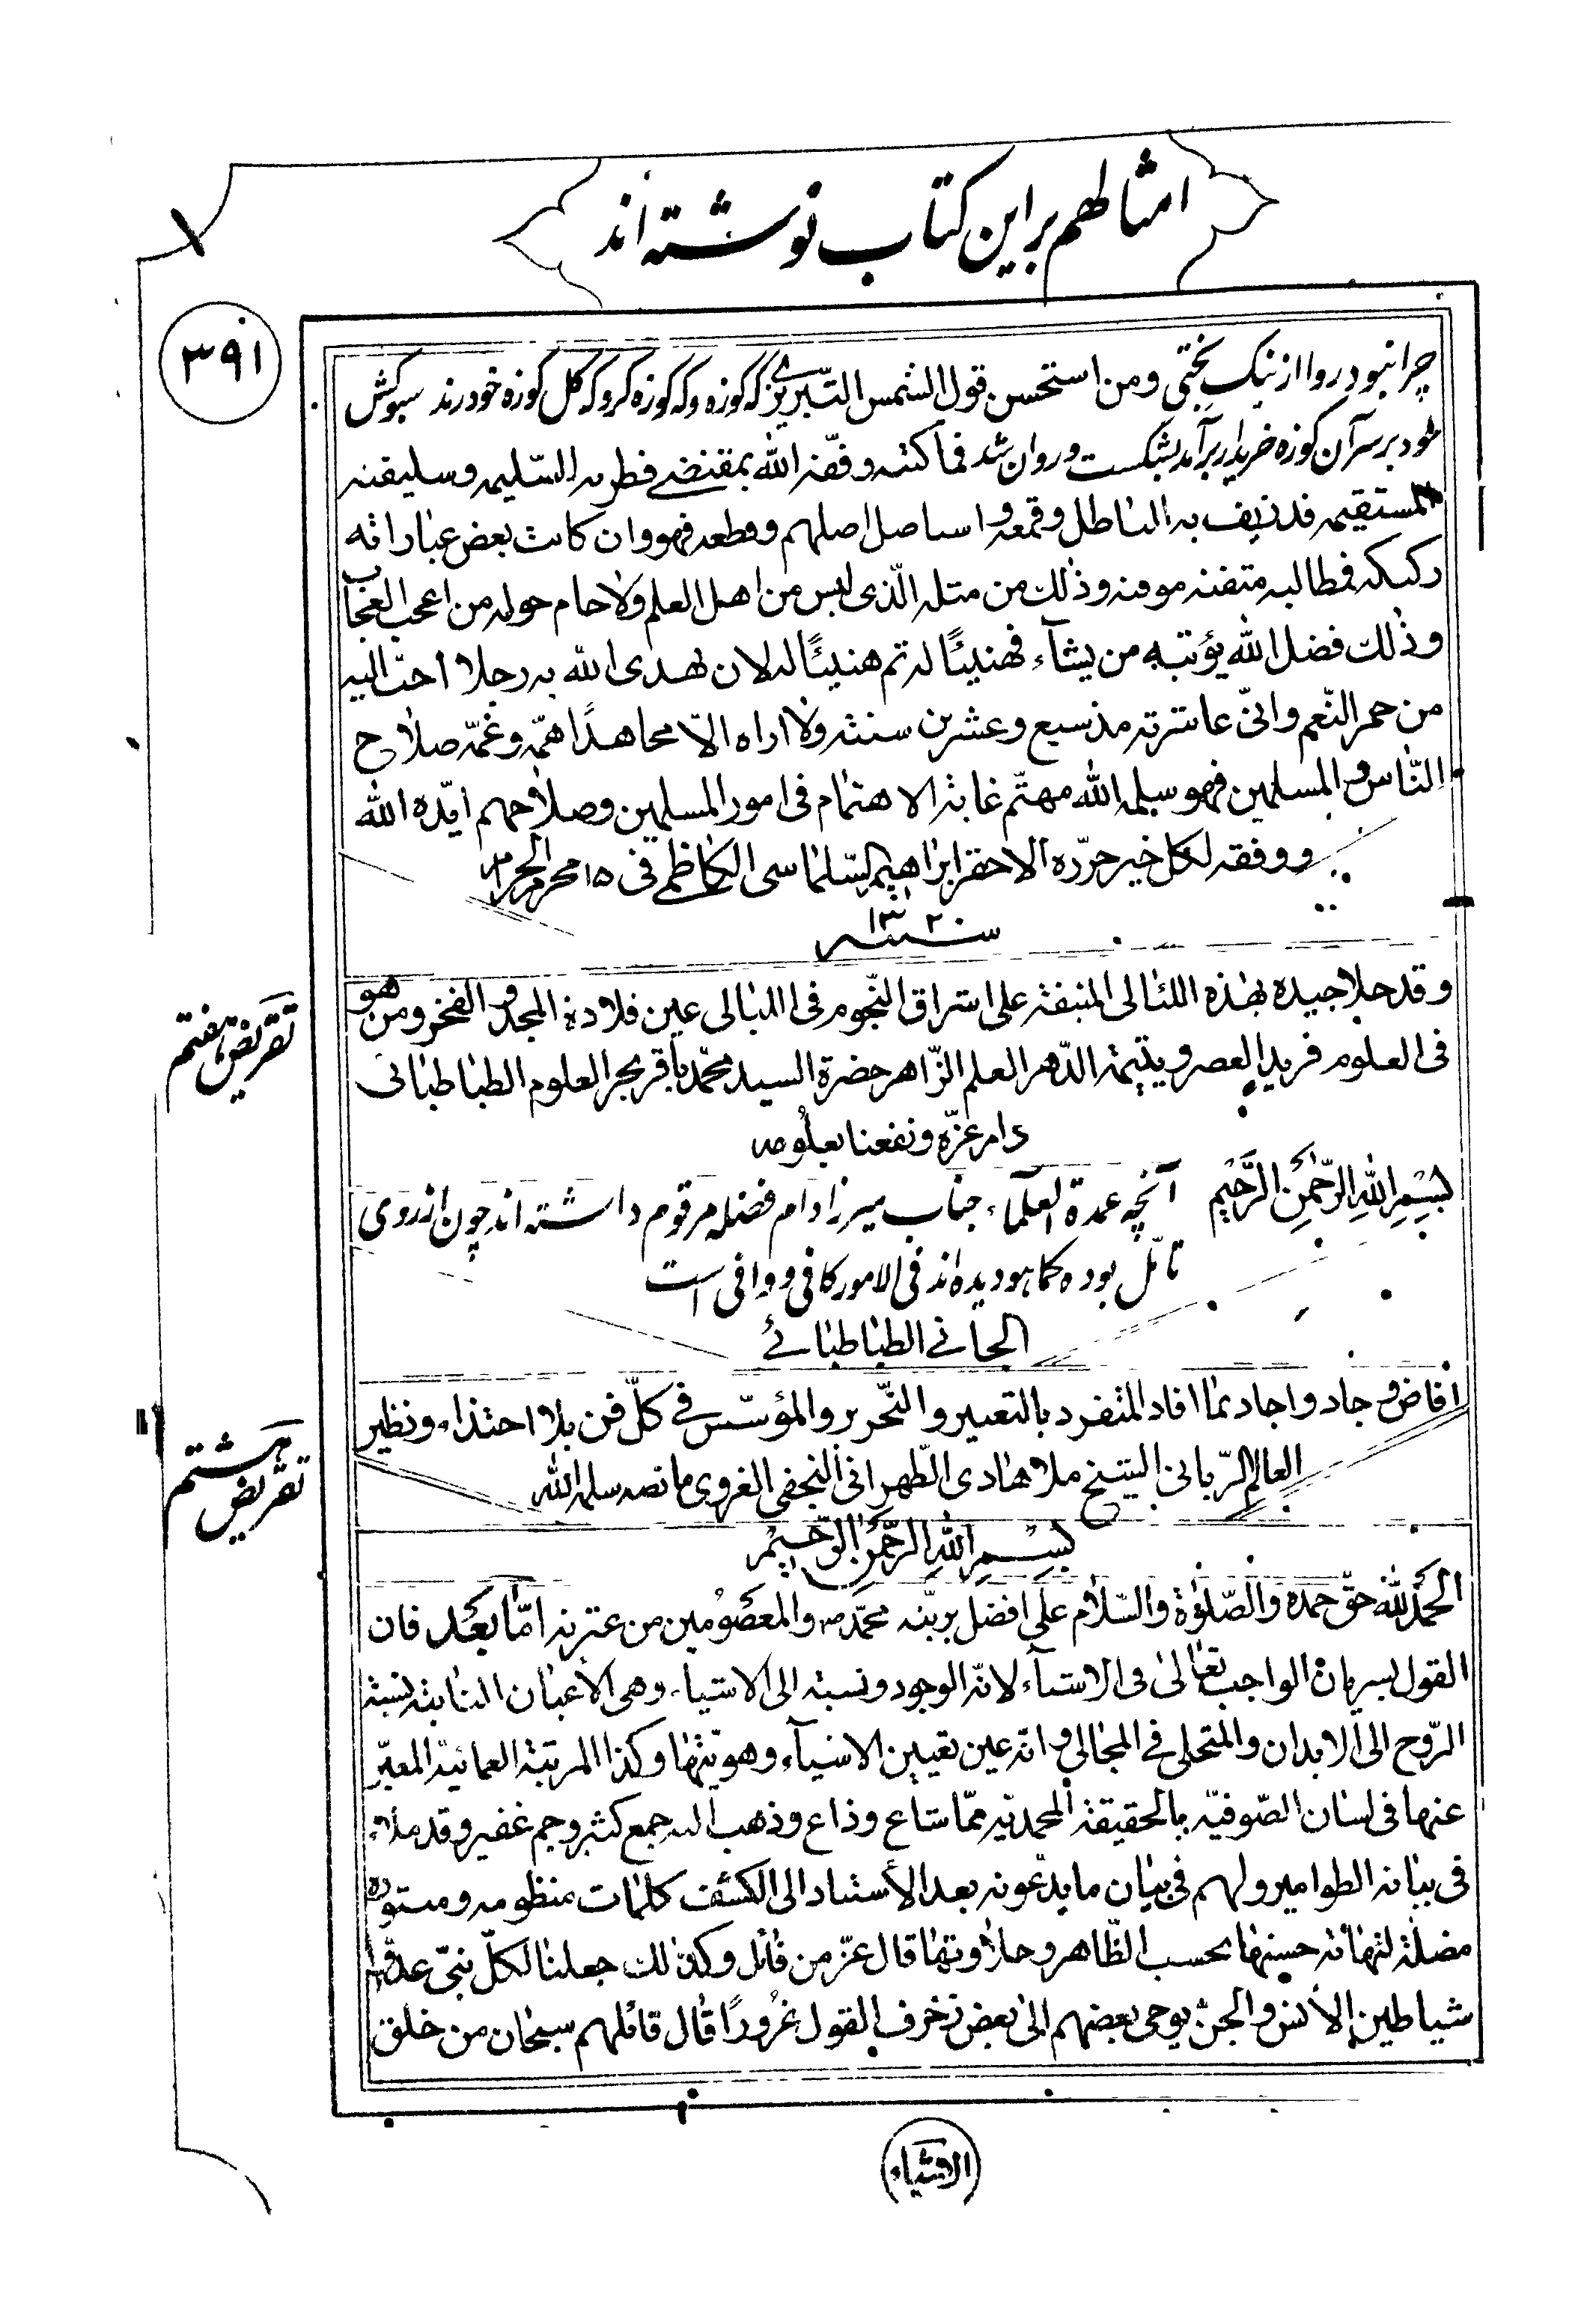 امثالهم بر این کتاب نوشته اند
۳۹۱
چرا نبود روا از نیک بختی ومن استحسن قول الشمس التّبریزی که کوزه وکه کوزه کر وکه کل کوزه خود رند سبوکش
خود بر سر آن کوزه خریدار برآمد بشکست و روان شد فما کتبه وفقه الله بمقتضی فطرته السّلیمه وسلیقته
المستقیمه قد زیف به الباطل وقمعه واستاصل اصلهم وقطعه فهو وان کانت بعض عباراته
رکیکه فمطالبه متقنه موقنه وذٰلک من مثله الّذی لیس من اهل العلم ولا حام حوله من اعجب العجآب
وذٰلک فضل الله یؤتیه من یشآء فهنیئًا له ثم هنیئًا له لان یهدی الله به رجلا احبّ الیه
من حمر النّعم وانّی عاشرته مذ سبع وعشرین سنته ولا اراه الّا مجاهدًا همّه وغمّه صلاح
النّاس والمسلمین فهو سلمه الله مهتّم غایة الاهتمام فی امور المسلمین وصلاحهم ایّده الله
ووفقه لکل خیر حرّره الاحقر ابراهیم السّلماسی الکاظمی فی ۱۵ محرم الحرام
سنه ۱۳۲۰
تقریض هفتم
وقد حلا جیده بهٰذه اللئالی المنیفة علی اشراق النّجوم فی اللیالی عین قلادة المجد والفخر ومن هو
فی العلوم فرید العصر ویتیمة الدّهر العلم الزّاهر حضرة السید محمّد باقر بحر العلوم الطباطبائی
دام عزّه ونفعنا بعلومه
بِسْمِ اللهِ الرَّحْمٰنِ الرَّحیْمِ آنچه عمدة العلمآء جناب میرزا دام فضله مرقوم داشته اند چون از روی
تامّل بوده کما هو دیده اند فی الامور کافی و وافی است
الجانی الطباطبائی
تقریض هشتم
افاض وجاد واجاد بما افاد المتفرد بالتعبیر والتّحریر والمؤسّس فی کلّ فن بلا احتذاء ونظیر
العالم الرّبانی الشیخ ملا هادی الطّهرانی النجفی الغروی ما نصه سلمه الله
بِسْمِ اللهِ الرَّحْمٰنِ الرَّحیْمِ
الحمد لله حقّ حمده والصّلوٰة والسّلام علی افضل بریّته محمّد ص والمعصومین من عترته امّا بعد فان
القول بسریان الواجب تعالیٰ فی الاشیآء لانّه الوجود ونسبته الی الاشیآء وهی الأعیان الثابتة نسبة
الرّوح الی الابدان والمتجلی فی المجالی وانّه عین تعیین الاشیآء وهویّتها وکذا المرتبة العمائیّة المعبّر
عنها فی لسان الصّوفیّه بالحقیقة المحمدیّه ممّا شاع وذاع وذهب الیه جمع کثیر وجم غفیر وقد ملاء
فی بیانه الطوامیر ولهم فی بیان ما یدّعونه بعد الأستناد الی الکشف کلمات منظومه ومنثوره
مضلّة لنهایة حسنها بحسب الظّاهر وحلاوتها قال عزّ من قائل وکذٰلک جعلنا لکلّ نبیّ عدوّا
شیاطین الأنس والجن یوحی بعضهم الی بعض زخرف القول غرورًا قال قائلهم سبحان من خلق
الاشیاء